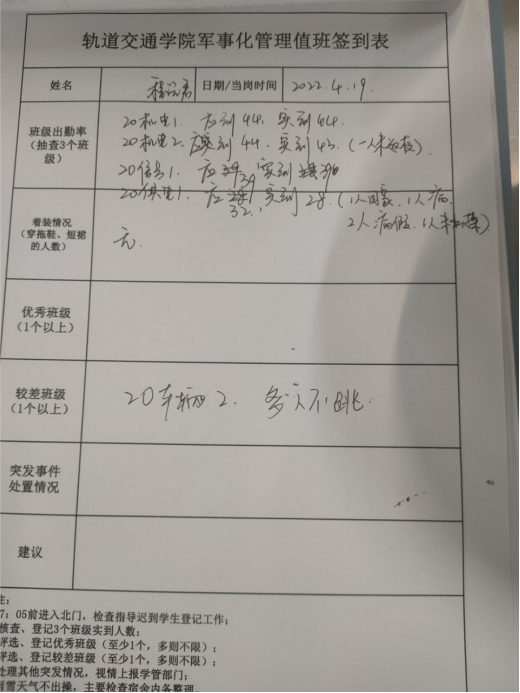 轨道交通学院军事化管理值班签到表
姓名 日期/当岗时间 2022.4.19.
班级出勤率
(抽查3个班
级)
20机电1. 应到44. 实到44.
20机电2. 应到44. 实到43. (一人未返校).
20信号1. 应到39 实到
20供电1. 应到32. 实到28 (1人回家、1人病
2人病假、1人未
着装情况
(穿拖鞋、短裙
的人数)
无.
优秀班级
(1个以上)
较差班级
(1个以上)
20车辆2. 多人不跳.
突发事件
处置情况
建议
注:
7:05前进入北门,检查指导迟到学生登记工作;
核查、登记3个班级实到人数;
评选、登记优秀班级(至少1个,多则不限);
评选、登记较差班级(至少1个,多则不限);
处理其他突发情况,视情上报学管部门;
雨雪天气不出操,主要检查宿舍内务整理